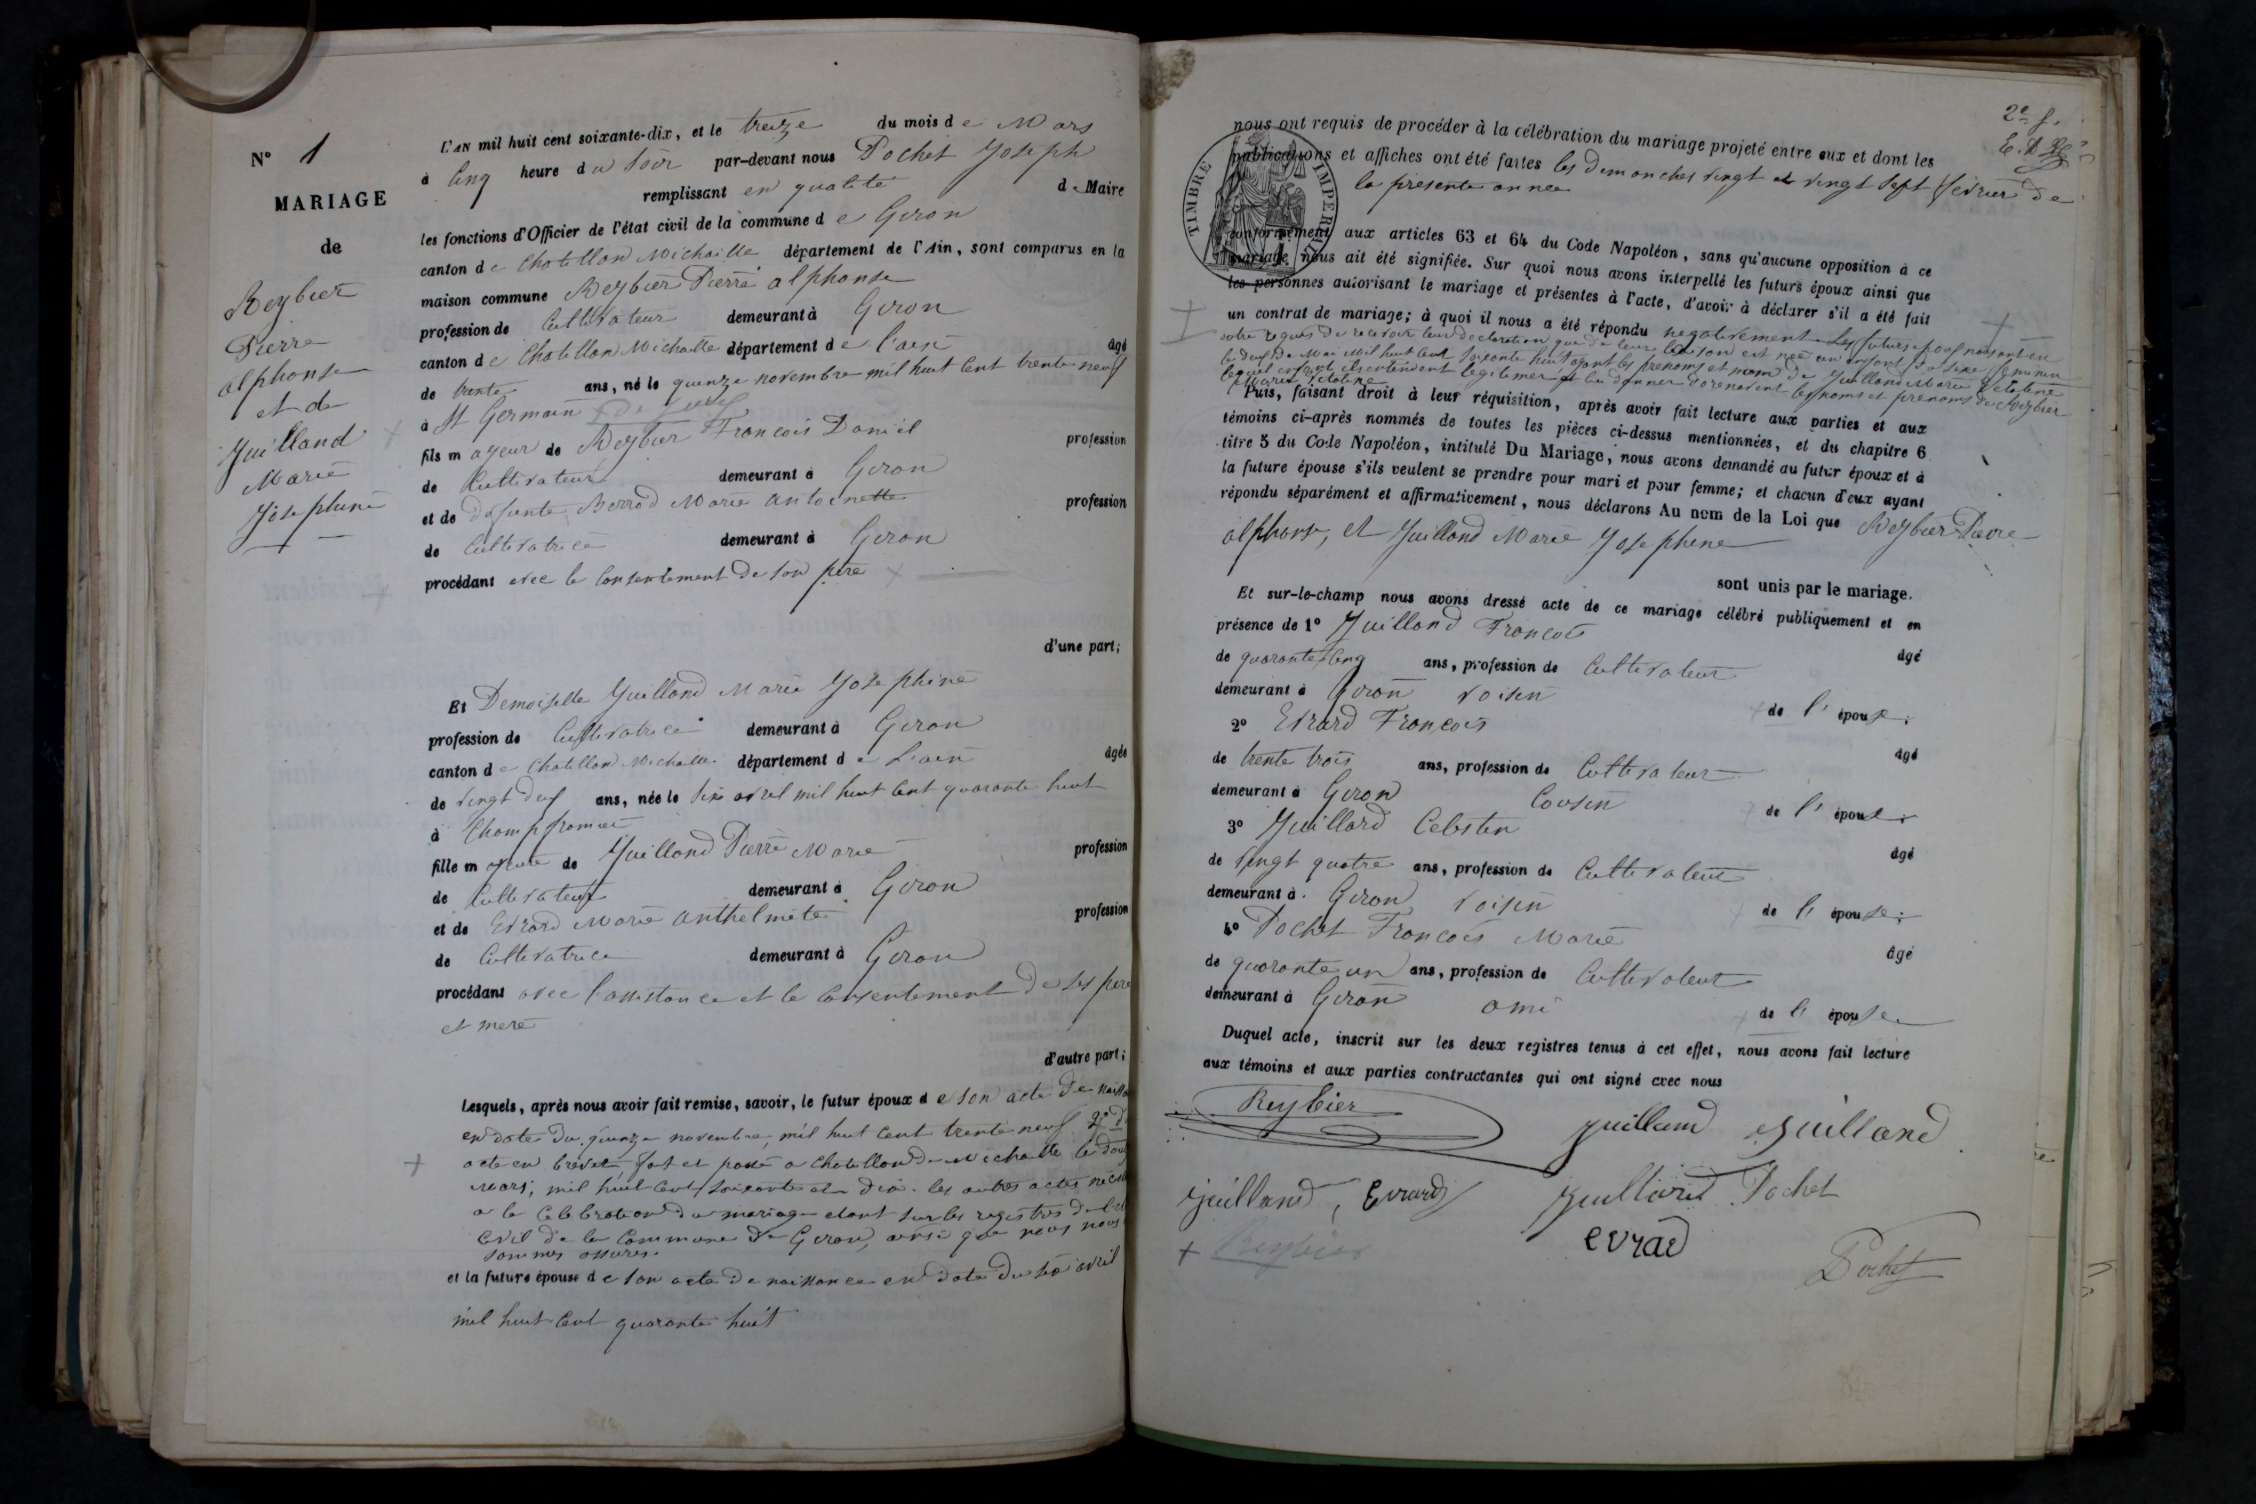 N° 1
MARIAGE
de
Reybier
Pierre
alphonse
et de
Juilland
Marie
Josephine
L'AN mil huit cent soixante-dix, et le treize du mois de Mars
à Cinq heure du Soir par-devant nous Pochet Joseph
remplissant en qualité de Maire
les fonctions d'Officier de l'état civil de la commune de Giron
canton de Chatillon Michaille département de l'Ain, sont comparus en la
maison commune Reybier Pierre alphonse
profession de Cultivateur demeurant à Giron
canton de Chatillon Michaille département de l'ain âgé
de trente ans, né le quinze novembre mil huit Cent trente neuf
à St Germain de Joux
fils mageur de Reybier François Daniel profession
de Cultivateur demeurant à Giron
et de defunte Berrod Marie antoinette profession
de Cultivatrice demeurant à Giron
procédant avec le Consentement de son père
d'une part;
Et Demoiselle Juilland Marie Josephine
profession de Cultivatrice demeurant à Giron
canton de Chatillon Michaille département de L'ain âgée
de vingt deux ans, née le six avril mil huit Cent quarante huit
à Champfromier
fille mageure de Juilland Pierre Marie profession
de Cultivateur demeurant à Giron
et de Evrard Marie anthelmète profession
de Cultivatrice demeurant à Giron
procédant avec l'assistance et le Consentement de ses père
et mere
d'autre part;
Lesquels, après nous avoir fait remise, savoir, le futur époux de son acte de
en date du quinze novembre, mil huit Cent trente neuf 2°
acte en brevet, fait et passé a Chatillon de Michaille le
Mars, mil huit Cent soixante et dix. les autres actes
a la Celebration du mariage etant sur les registres de
Civil de la Commune de Giron, ainsi que nous nous
sommes assurés.
et la future épouse de son acte de naissance en date du six avril
mil huit Cent quarante huit
2e f.
nous ont requis de procéder à la célébration du mariage projeté entre eux et dont les
publications et affiches ont été faites les Dimanches vingt et vingt Sept fevrier de
la presente annee
TIMBRE IMPERIAL
conformément aux articles 63 et 64 du Code Napoléon, sans qu'aucune opposition à ce
mariage nous ait été signifiée. Sur quoi nous avons interpellé les futurs époux ainsi que
les personnes autorisant le mariage et présentes à l'acte, d'avoir à déclarer s'il a été fait
un contrat de mariage; à quoi il nous a été répondu negativement Les futurs epoux nous ont en
outre requis de recevoir leur declaration que de leur liaison est née un enfant du sexe feminin
le deux de Mai mil huit Cent soixante huit, ayant les prenoms et nom de Juilland Marie Victorine
lequel enfant ils entendent legitimer et lui donner dorenavant les noms et prenoms de Reybier
Marie Victorine
Puis, faisant droit à leur réquisition, après avoir fait lecture aux parties et aux
témoins ci-après nommés de toutes les pièces ci-dessus mentionnées, et du chapitre 6
titre 5 du Code Napoléon, intitulé Du Mariage, nous avons demandé au futur époux et à
la future épouse s'ils veulent se prendre pour mari et pour femme; et chacun d'eux ayant
répondu séparément et affirmativement, nous déclarons Au nom de la Loi que Reybier Pierre
alphonse, et Juilland Marie Josephine
sont unis par le mariage.
Et sur-le-champ nous avons dressé acte de ce mariage célébré publiquement et en
présence de 1° Juilland François
âgé
de quarante Cinq ans, profession de Cultivateur
demeurant à Giron voisin de l' épouse;
2° Evrard François
âgé
de trente trois ans, profession de Cultivateur
demeurant à Giron Cousin de l' épouse;
3° Juillard Celestin
âgé
de vingt quatre ans, profession de Cultivateur
demeurant à Giron voisin de l' épouse;
4° Pochet François Marie
âgé
de quarante un ans, profession de Cultivateur
demeurant à Giron ami de l' épouse
Duquel acte, inscrit sur les deux registres tenus à cet effet, nous avons fait lecture
aux témoins et aux parties contractantes qui ont signé avec nous
Reybier juilland Juilland
juilland, Evrard juilliard Pochet
Reybier evrad
Pochet